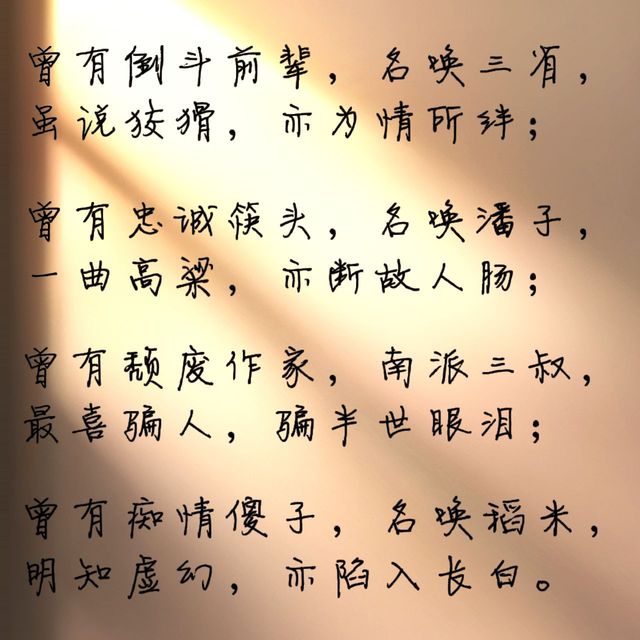 曾有倒斗前辈，名唤三省，
虽说狡猾，亦为情所绊；
曾有忠诚筷头，名唤潘子，
一曲高粱，亦断故人肠；
曾有颓废作家，南派三叔，
最喜骗人，骗半世眼泪；
曾有痴情傻子，名唤稻米，
明知虚幻，亦陷入长白。